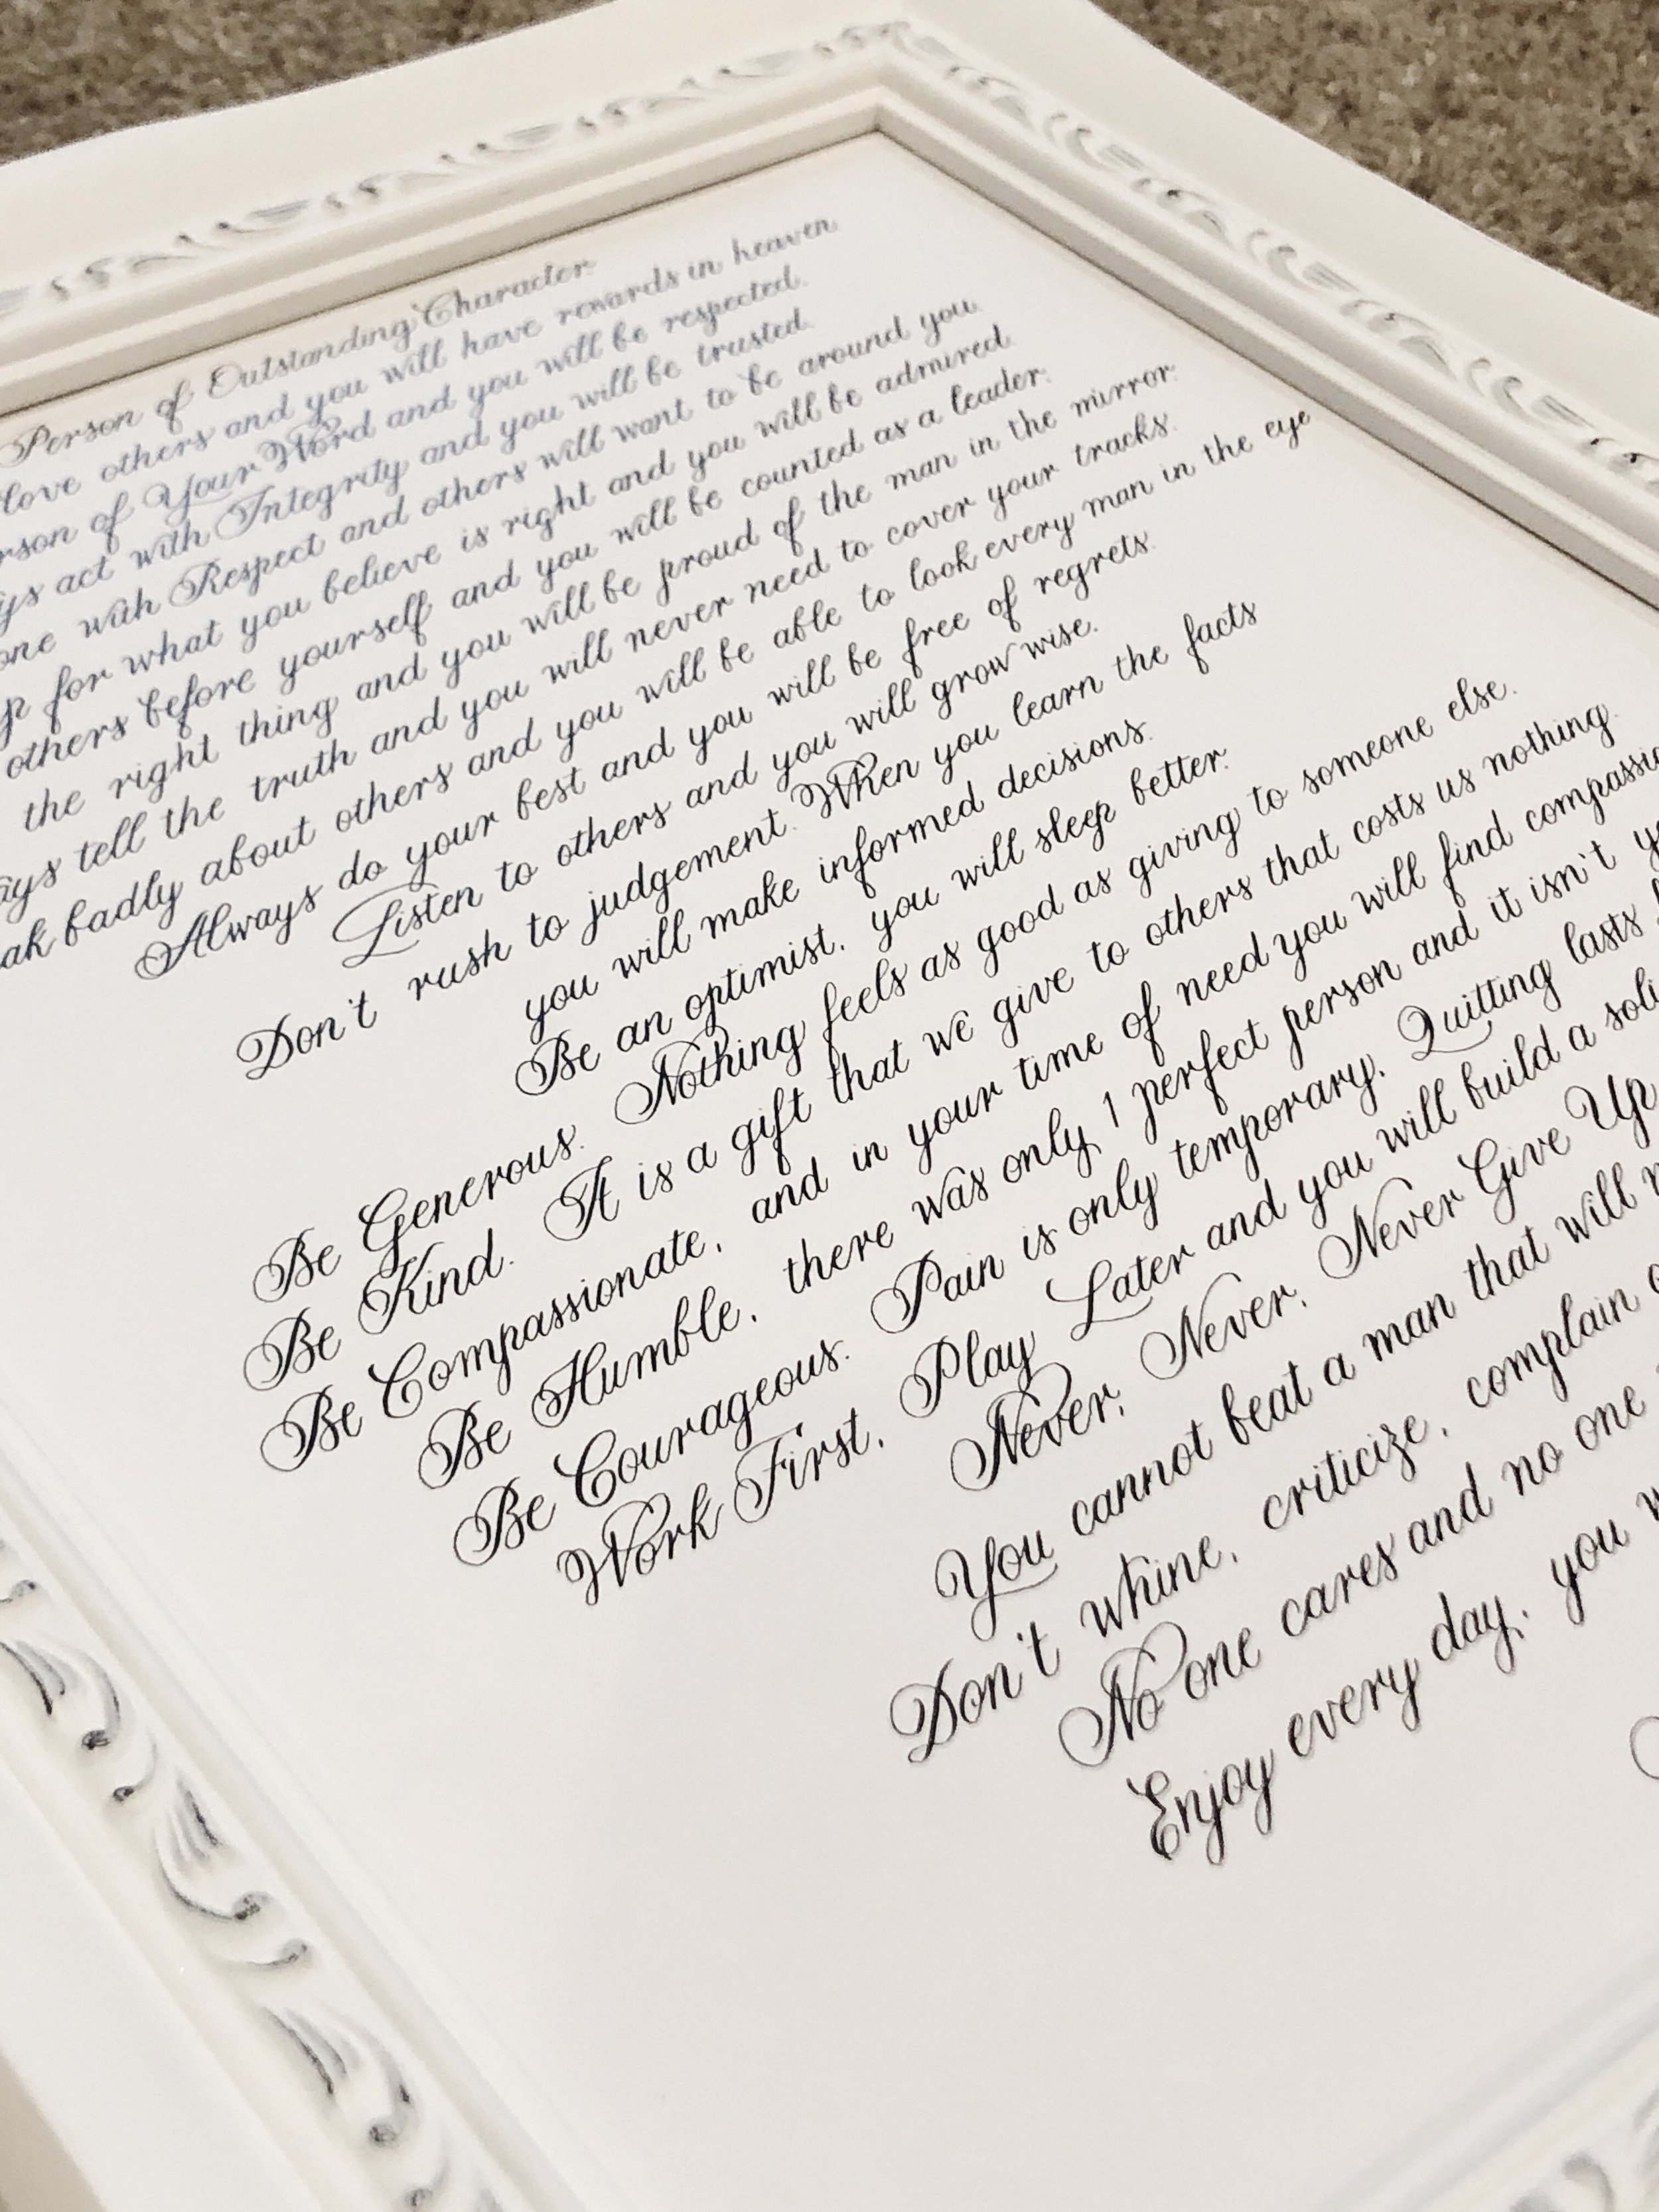 Person of Outstanding Character.
love others and you will have rewards in heaven.
of Your Word and you will be respected.
act with Integrity and you will be trusted.
with Respect and others will want to be around you.
for what you believe is right and you will be admired.
others before yourself and you will be counted as a leader.
the right thing and you will be proud of the man in the mirror.
tell the truth and you will never need to cover your tracks.
badly about others and you will be able to look every man in the eye
Always do your best and you will be free of regrets.
Listen to others and you will grow wise.
Don't rush to judgement. When you learn the facts
you will make informed decisions.
Be an optimist, you will sleep better.
Be Generous. Nothing feels as good as giving to someone else.
Be Kind. It is a gift that we give to others that costs us nothing.
Be Compassionate, and in your time of need you will find
Be Humble, there was only 1 perfect person and it isn't
Be Courageous. Pain is only temporary. Quitting lasts
Work First, Play Later and you will build a
Never, Never, Never Give Up
You cannot beat a man that will
Don't whine, criticize, complain
No one cares and no one
Enjoy every day, you